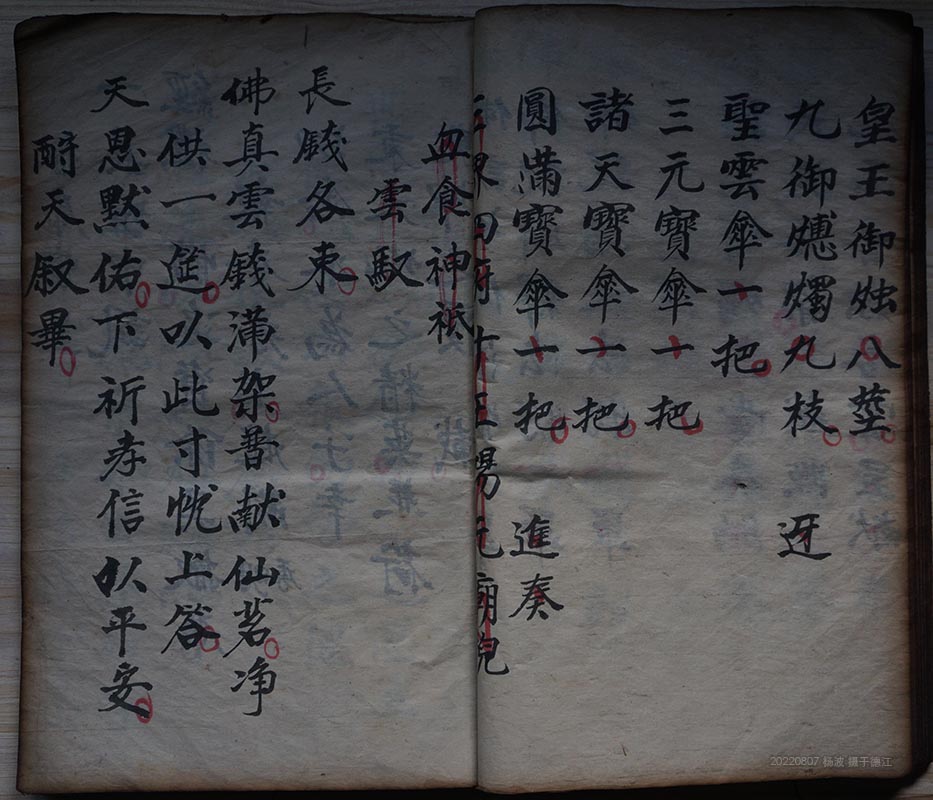 皇王御烛八莖
九御燭九枝 迓
聖雲傘一把
三元寶傘一把
諸天寶傘一把
圓滿寶傘一把 進奏
三界四府十王陽元廟
血食神祇
雲馭
長錢各束
佛真雲錢滿架普献仙茗净
供一筵以此寸忱上答
天恩默佑下祈孝信以平安
酧天叙畢
20220807 杨波 摄于德江